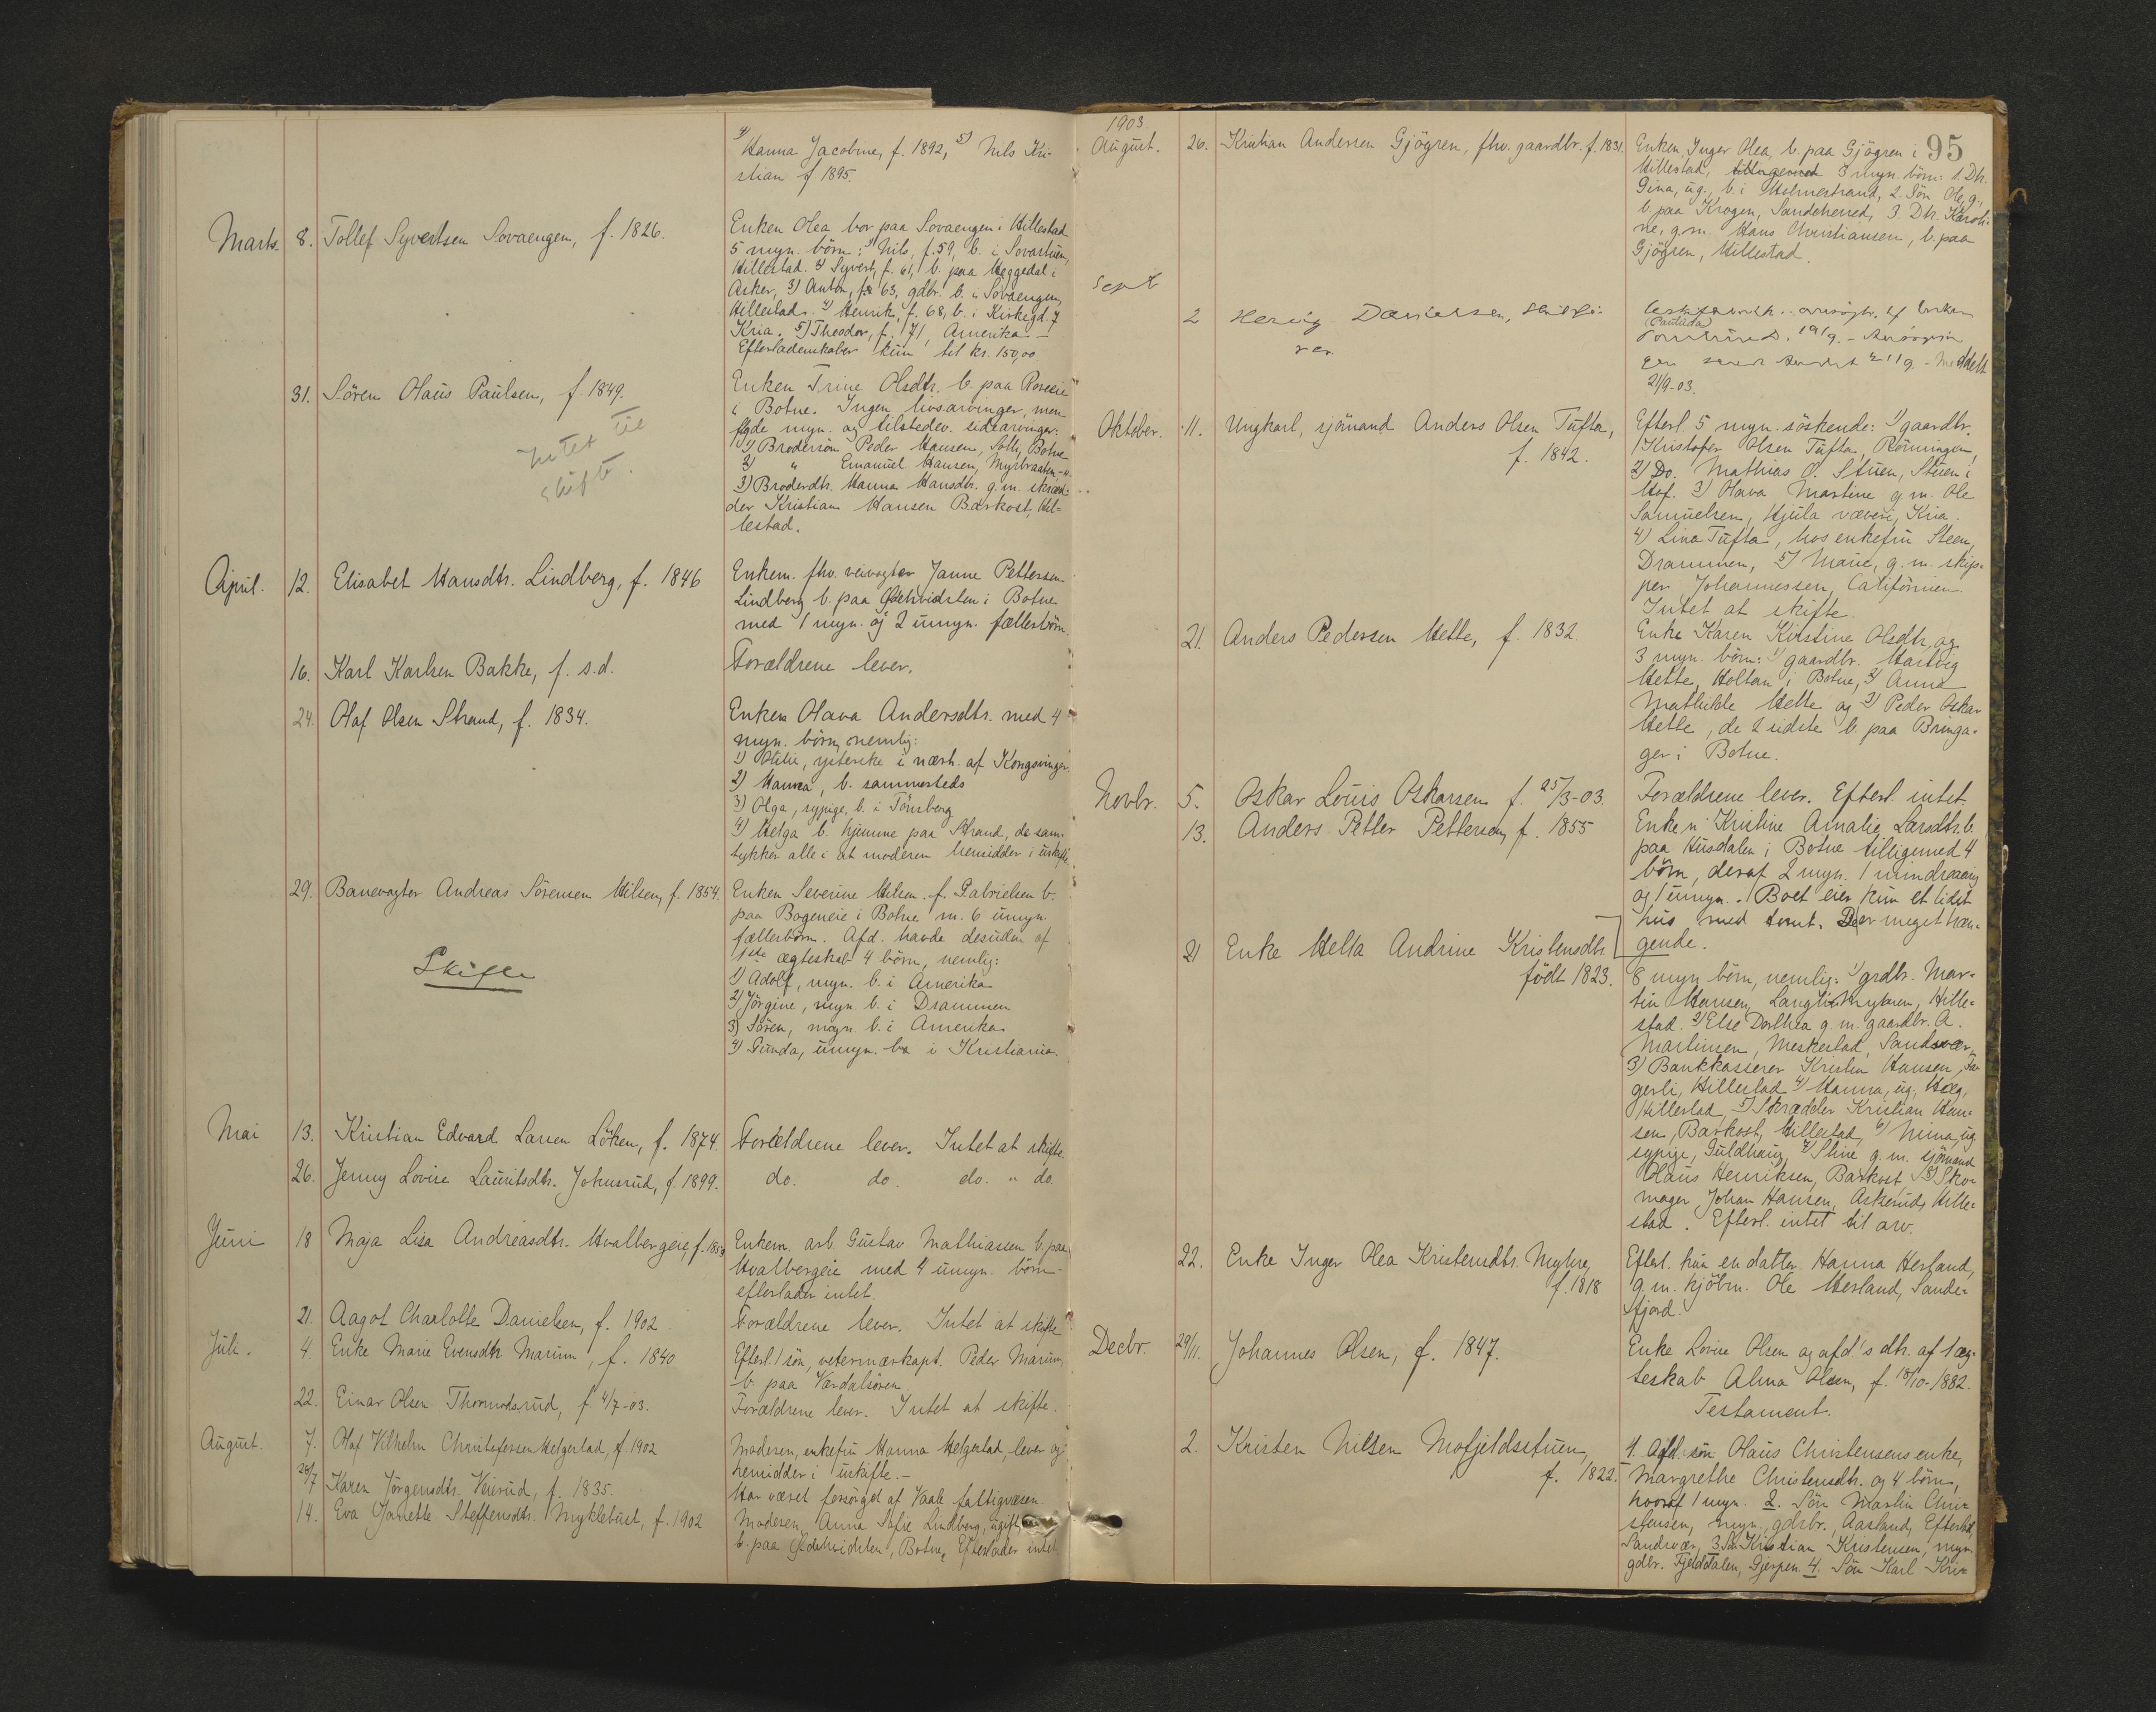 4) Hanna Jacobine, f. 1892, 5) Nils Kri-
stian f. 1895.
Marts. 8. Tollef Syvertsen Sovaengen, f. 1826.
Enken Olea bor paa Sovaengen i Hillestad
5 myn. börn: 1) Nils, f. 59, b. i Sovastuen,
Hillestad. 2) Syvert, f. 61, b. paa Heggedal i
Asker, 3) Anton, f. 63, gdbr. b. i Sovaengen,
Hillestad. 4) Henrik, f. 68, b. i Kirkegd. 7
Kria. 5) Theodor, f. 71, Amerika -
Efterladenskaber kun til kr. 150,00
31. Sören Olaus Paulsen, f. 1849.
Intet til
skifte.
Enken Trine Olsdtr. b. paa Roseeie
i Botne. Ingen livsarvinger, men
flgde myn. og tilstedev. udearvinger:
1) Brodersön Peder Hansen, Solli, Botne
2) " Emanuel Hansen, Myrbraaten -"-
3) Broderdtr. Hanna Hansdtr. g. m. skræd-
der Kristian Hansen Barkost, Hil-
lestad.
April. 12. Elisabet Hansdtr. Lindberg, f. 1846
Enkem. fhv. veivogter Janne Pettersen
Lindberg b. paa Gdehvidsten i Botne
med 1 myn. og 2 umyn. fællesbörn.
16. Karl Karlsen Bakke, f. s.d.
Forældrene lever.
24. Olaf Olsen Strand, f. 1834.
Enken Olava Andersdtr. med 4
myn. börn, nemlig:
1) Otilie, ysterske i nærh. af Kongsvinger
2) Hanna, b. sammesteds
3) Olga, sypige, b. i Tönsberg
4) Helga b. hjemme paa Strand, de sam-
tykker alle i at moderen hensidder i uskifte.
29. Banevogter Andreas Sörensen Hilsen, f. 1854.
Skifte
Enken Severine Hilsen f. Gabrielsen b.
paa Bogeneie i Botne m. 6 umyn.
fællesbörn. Afd. havde desuden af
1ste ægteskab 4 börn, nemlig:
1) Adolf, myn. b. i Amerika
2) Jörgine, myn. b. i Drammen
3) Sören, myn. b. i Amerika
4) Gunda, umyn. b. i Kristiania.
Mai 13. Kristian Edvard Larsen Löken, f. 1874.
Forældrene lever. Intet at skifte.
26. Jenny Lovise Lauritsdtr. Johnsrud, f. 1899.
do. do. do. " do.
Juni 18 Maja Lisa Andreasdtr. Hvalbergeie, f. 1853
Enkem. arb. Gustav Mathiassen b. paa
Hvalbergeie med 4 umyn. börn -
efterlader intet.
21. Aagot Charlotte Danielsen, f. 1902.
Forældrene lever. Intet at skifte
Juli. 4. Enke Marie Evensdtr. Marum, f. 1840
Efterl. 1 sön, veterinærkapt. Peder Marum,
b. paa Værdalsören.
22. Einar Olsen Thormodsrud, f. 4/7-03.
Forældrene lever. Intet at skifte.
August. 7. Olaf Vilhelm Christofersen Helgestad, f. 1902
Moderen, enkefru Hanna Helgestad, lever og
hensidder i uskifte.-
26/7 Karen Jörgensdtr. Veierud, f. 1835.
Har været forsörget af Vaale fattigvæsen
14. Eva Janette Steffensdtr. Myklebust, f. 1902
Moderen, Anna Sofie Lindberg, ugift,
b. paa Gdehvidsten, Botne. Efterlader intet.
95
1903
August. 26. Kristian Andersen Gjögren, fhv. gaardbr. f. 1831.
Enken, Inger Olea, b. paa Gjögren i
Hillestad, tilligemed 3 myn. börn: 1. Dtr.
Gina, ug., b. i Holmestrand, 2. Sön Ole, g.,
b. paa Krogen, Sandeherred, 3. Dtr. Karoli-
ne, g. m. Hans Christiansen, b. paa
Gjögren, Hillestad.
Sept
2 Herlög Danielsen,
(Paulida)
21/9-03.
Oktober. 11. Ungkarl, sjömand Anders Olsen Tufta,
f. 1842.
Efterl. 5 myn. söskende: 1) gaardbr.
Kristofer Olsen Tufta, Rönningen,
2) Do. Mathias O. Stuen, Stuen i
Hof. 3) Olava Martine g. m. Ole
Samuelsen, Hjula væveri, Kria.
4) Lina Tufta, hos enkefru Steen,
Drammen, 5) Marie, g. m. skip-
per Johannessen, Californien.
Intet at skifte.
21. Anders Pedersen Hette, f. 1832.
Enke Karen Kirstine Olsdtr. og
3 myn. börn: 1) gaardbr. Hartvig
Hette, Holtan i Botne, 2) Anna
Mathilde Hette og 3) Peder Oskar
Hette, de 2 sidste b. paa Bringa-
ger i Botne.
Novbr. 5. Oskar Louis Oskarsen f. 25/3-03.
Forældrene lever. Efterl. intet.
13. Anders Petter Pettersen, f. 1855
Enken Kristine Amalie Larsdtr. b.
paa Husdalen i Botne tilligemed 4
börn, deraf 2 myn. 1 mindreaarig
og 1 umyn. Boet eier kun et lidet
hus med tomt. Der meget træn-
gende.
21 Enke Hella Andrine Kristensdtr.
födt 1823.
8 myn. börn, nemlig: 1) grdbr. Mar-
tin Hansen, Langlimyhren, Hille-
stad. 2) Else Dorthea g. m. gaardbr. A.
Martinsen, Meskestad, Sandsvær,
3) Bankkasserer Kristen Hansen, Fa-
gerli, Hillestad 4) Hanna, ug., Hæg,
Hillestad, 5) Skrædder Kristian Han-
sen, Barkost, Hillestad, 6) Nina, ug.
sypige, Guldhaug, 7) Stine g. m. sjömand
Olaus Henriksen, Barkost 8) Sko-
mager Johan Hansen, Askerud, Hille-
stad. Efterl. intet til arv.
22. Enke Inger Olea Kristensdtr. Myhre,
f. 1818
Efterl. kun en datter Hanna Hesland,
g. m. kjöbm. Ole Hesland, Sande-
fjord.
Decbr. 29/11. Johannes Olsen, f. 1847.
Enke Lovise Olsen og afd's dtr. af 1 æg-
teskab Alma Olsen, f. 18/10-1882.
Testament.
2. Kristen Nilsen Mofjeldsstuen,
f. 1822.
1. Afd. sön Olaus Christensens enke,
Margrethe Christensdtr. og 4 börn,
hvoraf 1 myn. 2. Sön Martin Chri-
stensen, myn. gdbr., Aasland, Efteröd,
Sandsvær, 3. Sön Kristian Kristensen, myn.
gdbr. Fjelddalen, Gjerpen 4. Sön Karl Kri-